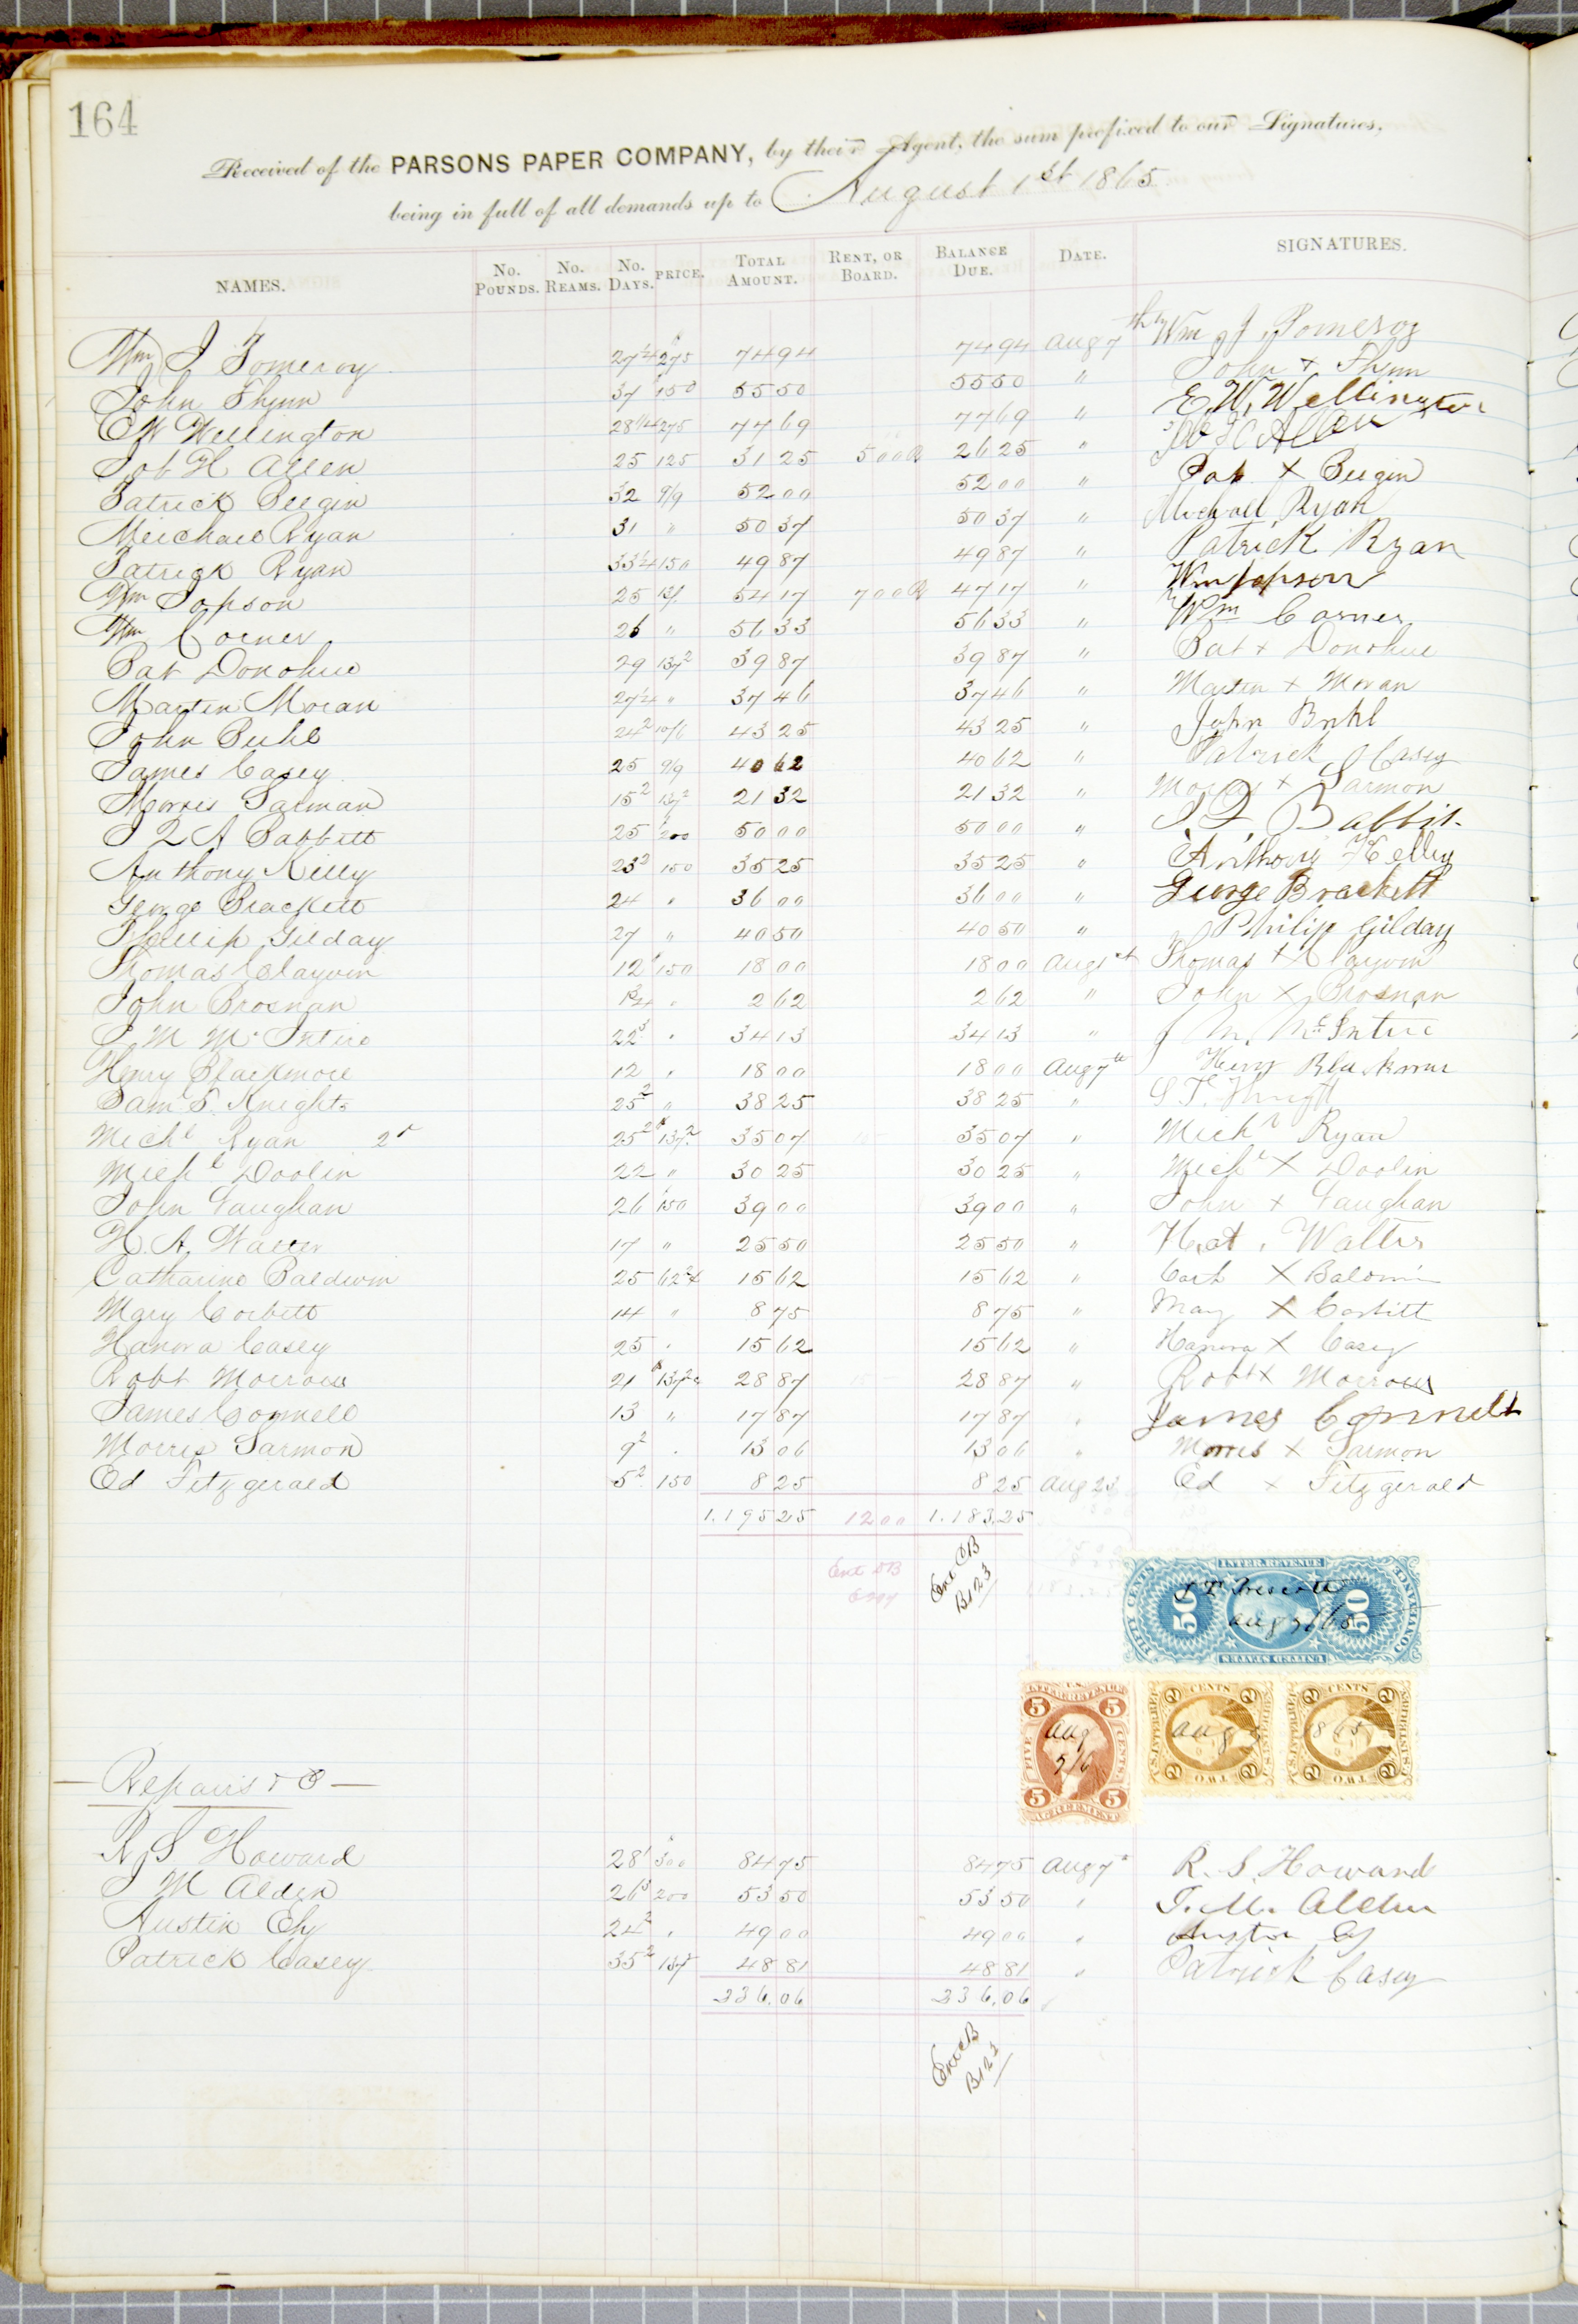 164
Received of the PARSONS PAPER COMPANY, by their Agent, the sum prefixed to our Signatures,
being in full of all demands up to August 1st 1865
NAMES. No. POUNDS. No. REAMS. No. DAYS. PRICE. TOTAL AMOUNT. RENT, OR BOARD. BALANCE DUE. DATE. SIGNATURES.
Wm J Pomeroy 27 1/4 275 74 94 74 94 Aug 7th Wm J. Pomeroy
John Flynn 37 150 55 50 55 50 " John + Flynn
E W Wellington 28 1/4 275 77 69 77 69 " E. W. Wellington
Job H Allen 25 125 31 25 5 00 26 25 " Job H Allen
Patrick Bergin 32 9/9 52 00 52 00 " Pat X Bergin
Meichael Ryan 31 " 50 37 50 37 " Michall Ryan
Patrick Ryan 33 1/4 150 49 87 49 87 " Patrick Ryan
Wm Jopson 25 13/. 54 17 7 00 47 17 " Wm Jopson
Wm Corner 26 " 56 33 56 33 " Wm Corner
Pat Donohue 29 137 2 39 87 39 87 " Pat + Donohue
Martin Moran 27 1/4 " 37 46 37 46 " Martin + Moran
John Buhl 24 2 10/6 43 25 43 25 " John Buhl
James Casey 25 9/9 40 62 40 62 " Patrick Casey
Morris Sarman 15 2 137 2 21 32 21 32 " Morris + Sarmon
J Q A Babbett 25 200 50 00 50 00 " J. Q. Babbit
Anthony Kelly 23 2 150 35 25 35 25 " Anthony Kelly
George Brackett 24 " 36 00 36 00 " George Brackett
Phillip Gilday 27 " 40 50 40 50 " Philip Gilday
Thomas Claywin 12 150 18 00 18 00 Aug 1st Thomas + Claywin
John Brosnan 1 3/4 " 2 62 2 62 " John X Brosnan
J M McIntire 22 3 " 34 13 34 13 " J M. McIntire
Henry Blackmore 12 " 18 00 18 00 Aug 7th Henry Blackmore
Saml F. Knights 25 2 " 38 25 38 25 "
Michl Ryan 2d 25 2 137 2 35 07 35 07 " Michl Ryan
Michl Doolin 22 " 30 25 30 25 " Michl X Doolin
John Vaughan 26 150 39 00 39 00 " John + Vaughan
H. A. Walter 17 " 25 50 25 50 " Walter
Catharine Baldwin 25 62 2 15 62 15 62 " Cath X Baldwin
Mary Corbett 14 " 8 75 8 75 " Mary X Corbitt
Hanora Casey 25 " 15 62 15 62 " Hanora X Casey
Robt Morrow 21 137 2 28 87 28 87 " Robt X Morrow
James Connell 13 " 17 87 17 87 " James Connell
Morris Sarmon 9 2 " 13 06 13 06 " Morris X Sarmon
Ed Fitzgerald 5 2 150 8 25 8 25 Aug 23 Ed x Fitzgerald
1.195 25 12 00 1.183.25
Ent CB
B123
INTER. REVENUE
FIFTY CENTS 50 50 CONVEYANCE
Prescott
Aug 7 65
UNITED STATES
U.S. INTER. REVENUE
5 5 FIVE CENTS 5 5
Aug
AGREEMENT
2 CENTS 2 U.S. INTER. REV. 2 TWO 2
Aug
2 CENTS 2 U.S. INTER. REV. 2 TWO 2
1865
Repairs & C
R S Howard 28 1 300 84 75 84 75 Aug 7th R. S. Howard
J M Alden 26 3 200 53 50 53 50 " J. M. Alden
Austin Ely 24 2 " 49 00 49 00 " Austin Ely
Patrick Casey 35 2 137 48 81 48 81 " Patrick Casey
236.06 236.06
Ent CB
B123